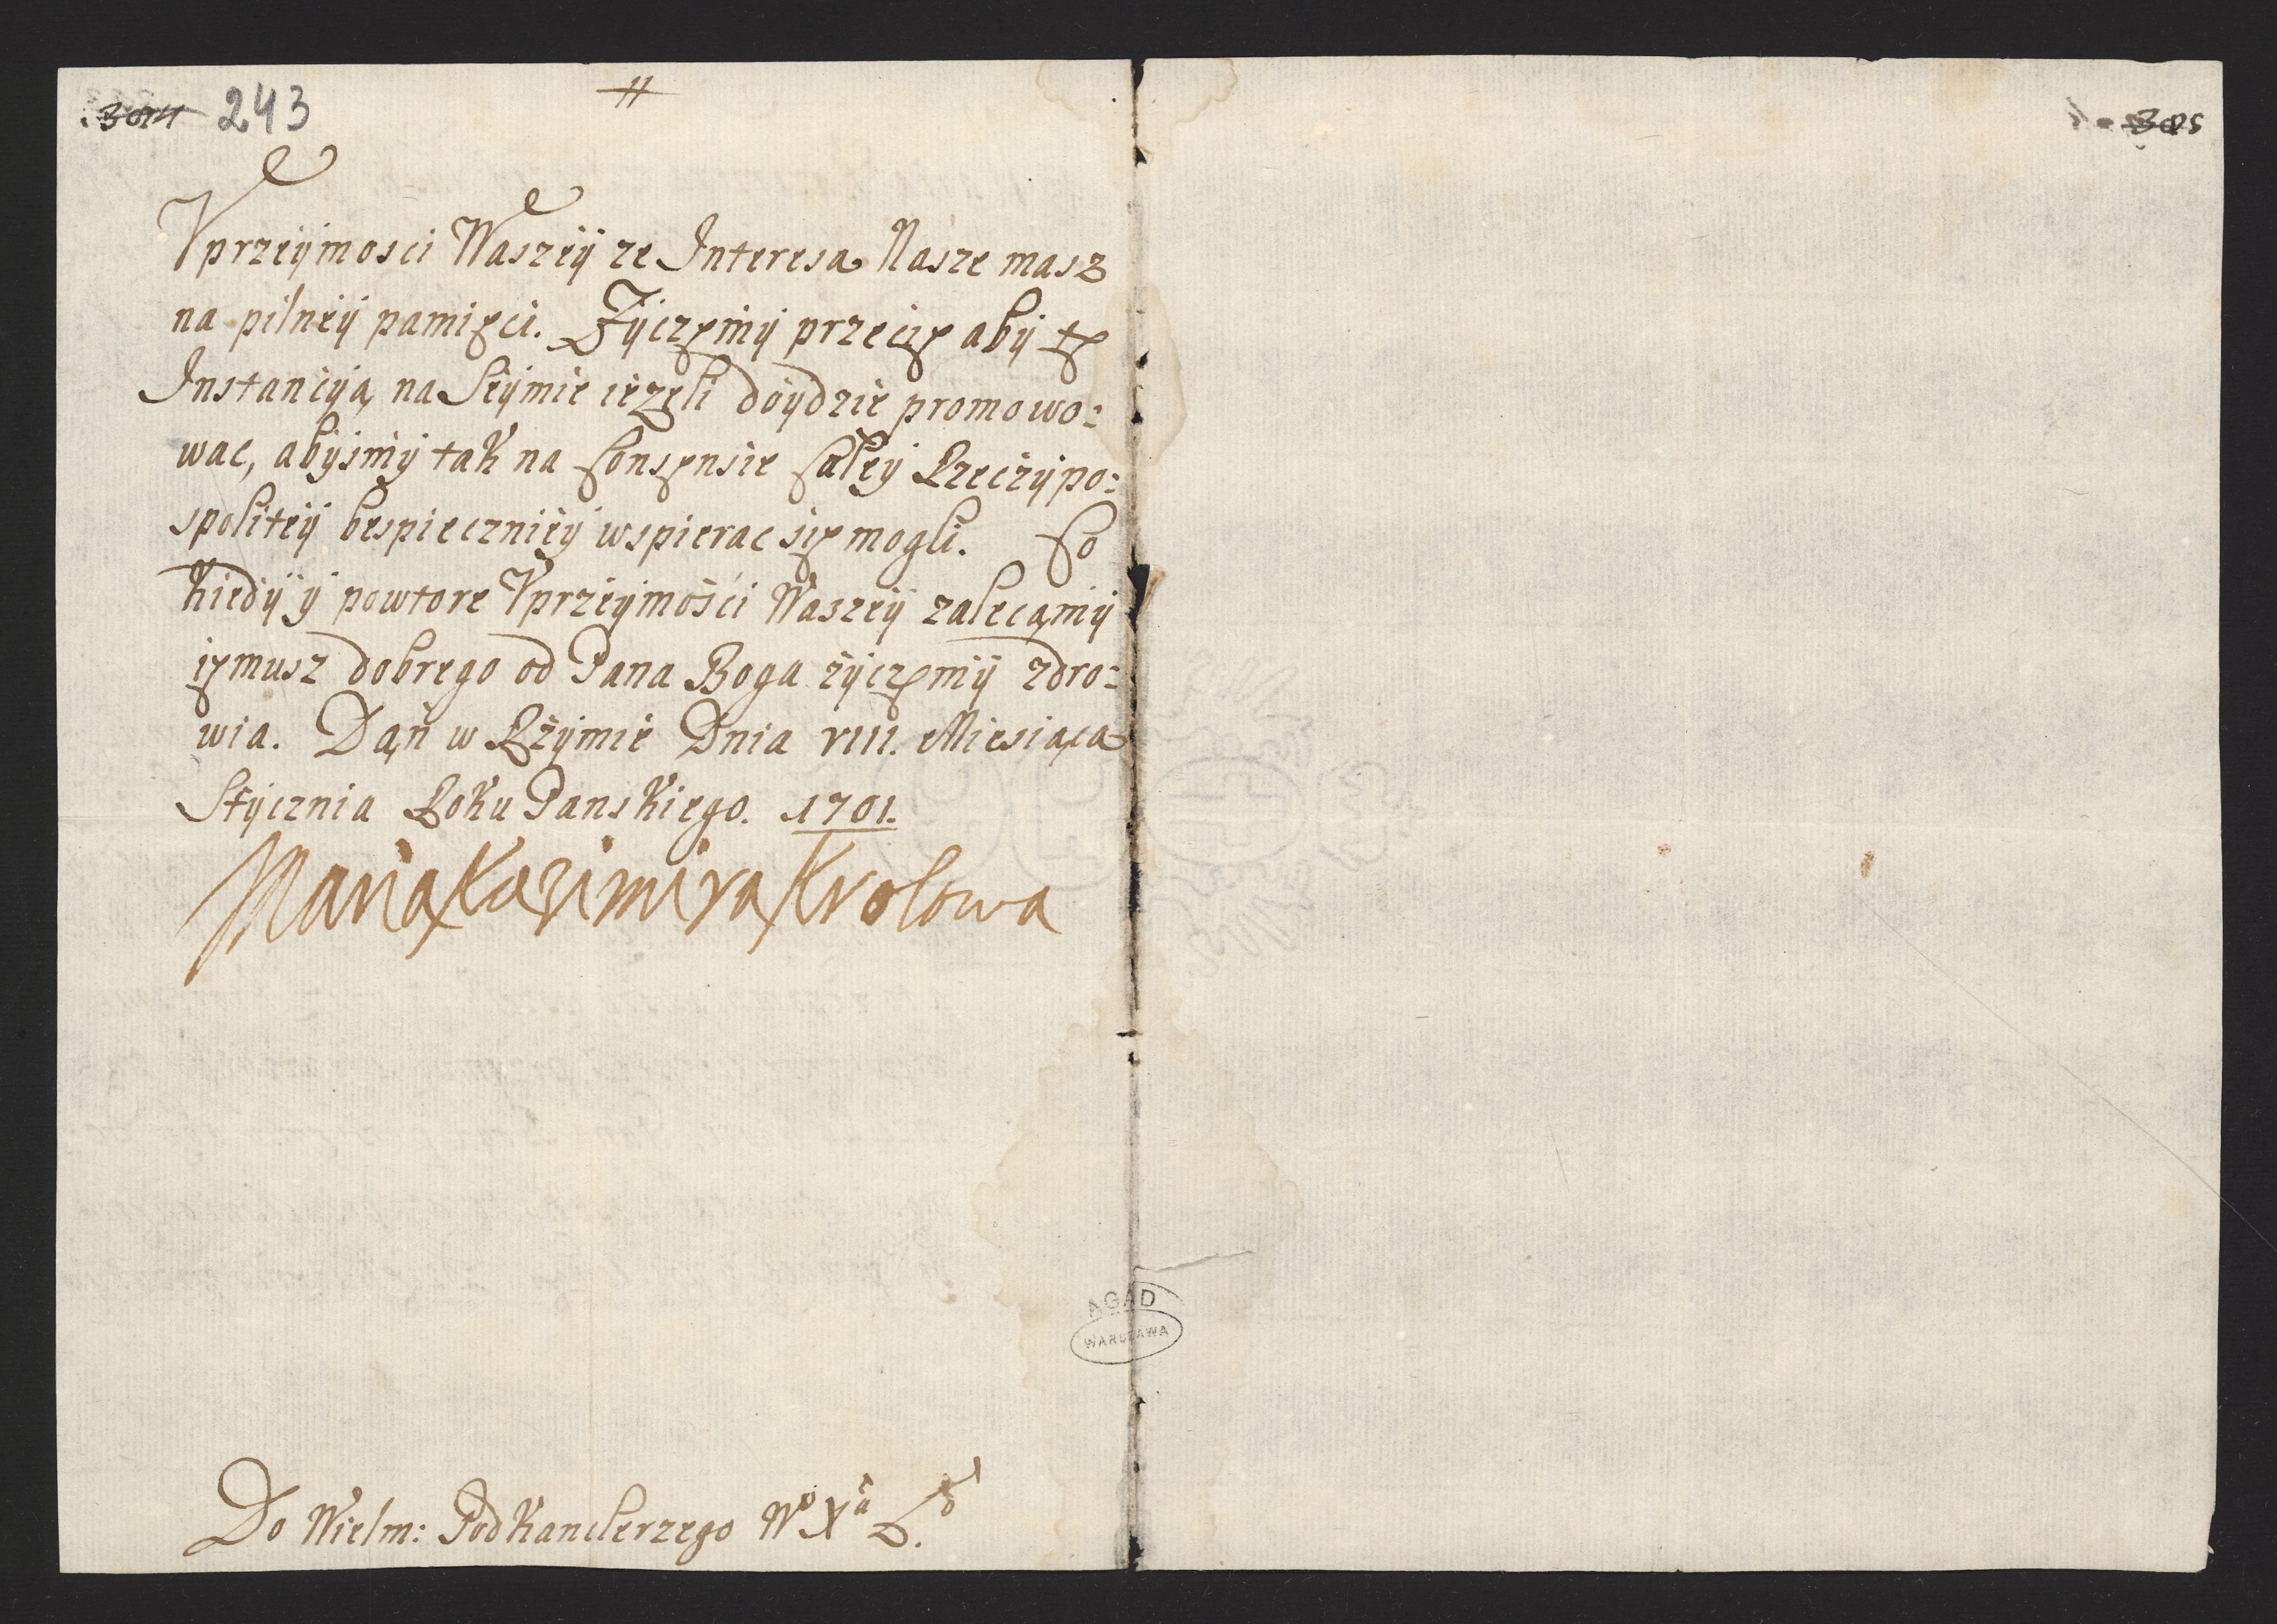 243
Vprzeÿmosci Waszeÿ ze Interesa Nasze masz
na pilneÿ pamięci. Zÿczęmÿ przecię abÿ tę
Instancÿą na Seÿmie ieżeli doÿdzie promowo:
wac, abÿsmÿ tak na Consęnsie Całeÿ Rzeczÿpo:
spoliteÿ bespiecznieÿ wspierac się mogli. Co
kiedÿ ÿ powtore Vprzeÿmości Waszeÿ zalecąmÿ
ięmusz dobrego od Pana Boga żÿczęmÿ zdro:
wia. Dąn w Rzÿmie Dnia VIII. Miesiąca
Stÿcznia Roku Panskiego. 1701.
Maria Kazimira Krolowa
AGAD
WARSZAWA
Do Wielm: Podkanclerzego Wº Xª L.º